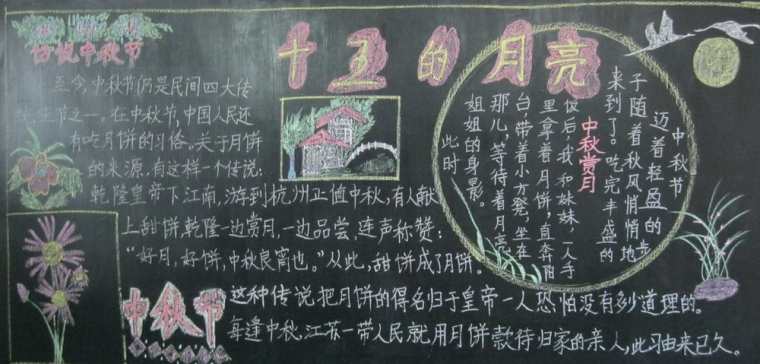 十五的月亮
话说中秋节
至今，中秋节仍是民间四大传
统佳节之一。在中秋节，中国人民还
有吃月饼的习俗。关于月饼
的来源，有这样一个传说：
乾隆皇帝下江南，游到杭州正值中秋，有人献
上甜饼，乾隆一边赏月，一边品尝，连声称赞：
“好月，好饼，中秋良宵也。”从此，甜饼成了月饼。
这种传说把月饼的得名归于皇帝一人恐怕没有多少道理的。
每逢中秋，江苏一带人民就用月饼款待归家的亲人，此习由来已久。
中秋节
中秋赏月
中秋节
迈着轻盈的步
子随着秋风悄悄地
来到了。吃完丰盛的
饭后，我和妹妹，一人手
里拿着月饼，直奔阳
台，带着小方凳，坐在
那儿，等待着月亮
姐姐的身影。
此时